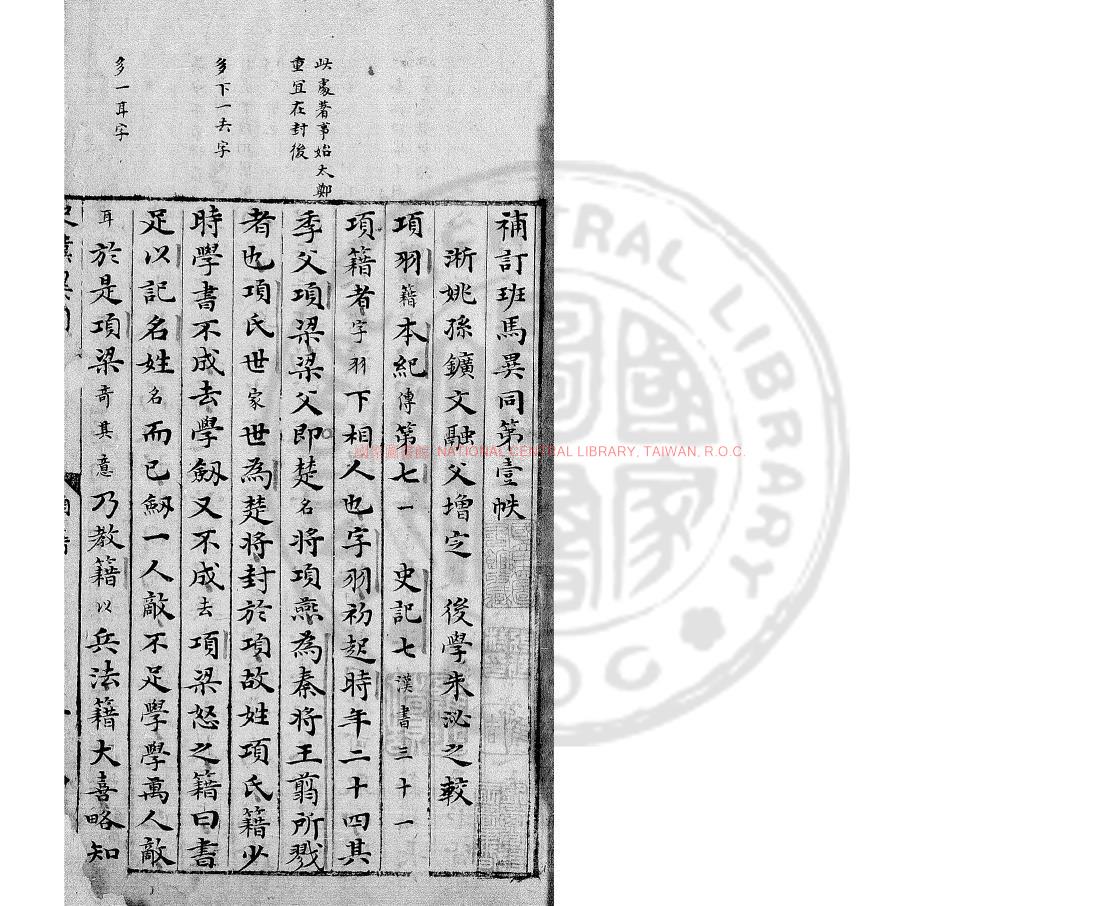 補訂班馬異同第壹帙
淅姚孫鑛文融父增定 後學朱泌之較
項羽籍本紀傳第七一 史記七漢書三十一
項籍者字羽下相人也字羽初起時年二十四其
季父項梁梁父即楚名將項燕為秦將王翦所戮
者也項氏世家世為楚將封於項故姓項氏籍少
時學書不成去學劔又不成去項梁怒之籍曰書
足以記名姓名而已劔一人敵不足學學萬人敵
耳於是項梁奇其意乃教籍以兵法籍大喜略知
此處著事始太鄭
重宜在封後
多下一去字
多一耳字
國家圖書館 NATIONAL CENTRAL LIBRARY, TAIWAN, R.O.C.
CENTRAL LIBRARY
ROC